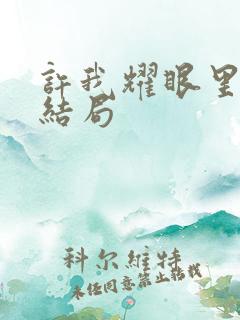 許我耀眼里
結局
科尔維特
未任同意禁止轉載